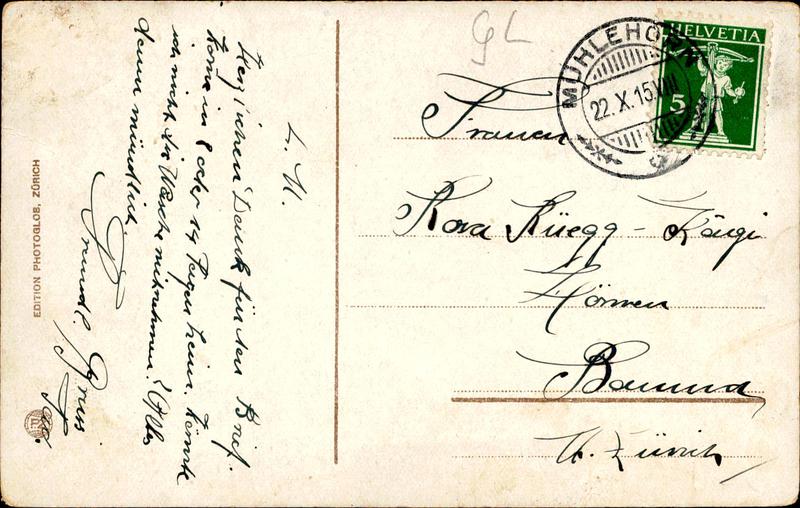 L. R.
Herzlichen Dank für den Brief.
Komme in 8 oder 14 Tagen heim. Könnte
ich nicht die Wäsche mitnehmen? Alles
dann mündlich
Freundl. Gruss
EDITION PHOTOGLOB, ZÜRICH
GL
MÜHLEHORN
22. X. 15
HELVETIA
5
Frauen
Rosa Rüegg - Kägi
Hörnen
Bauma
Kt. Zürich